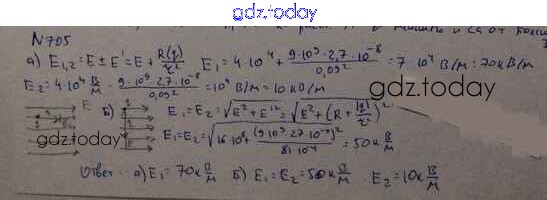 gdz.today
N705
а) E₁,₂ = E ± E' = E + R|q|/r² E₁ = 4·10⁴ + 9·10⁹·2,7·10⁻⁸/0,09² = 7·10⁴ В/м = 70кВ/м
E₂ = 4·10⁴ В/м - 9·10⁹·2,7·10⁻⁸/0,09² = 10⁴ В/м = 10 кВ/м
gdz.today
E б) E₁ = E₂ = √E² + E'² = √E² + (R + |q|/r²)²
gdz.today
E₁ = E₂ = √16·10⁸ + (9·10⁹·27·10⁻⁹)²/81·10⁻⁴ = 50к В/м
Ответ: а) E₁ = 70к В/м б) E₁ = E₂ = 50к В/м. E₂ = 10к В/м
gdz.today